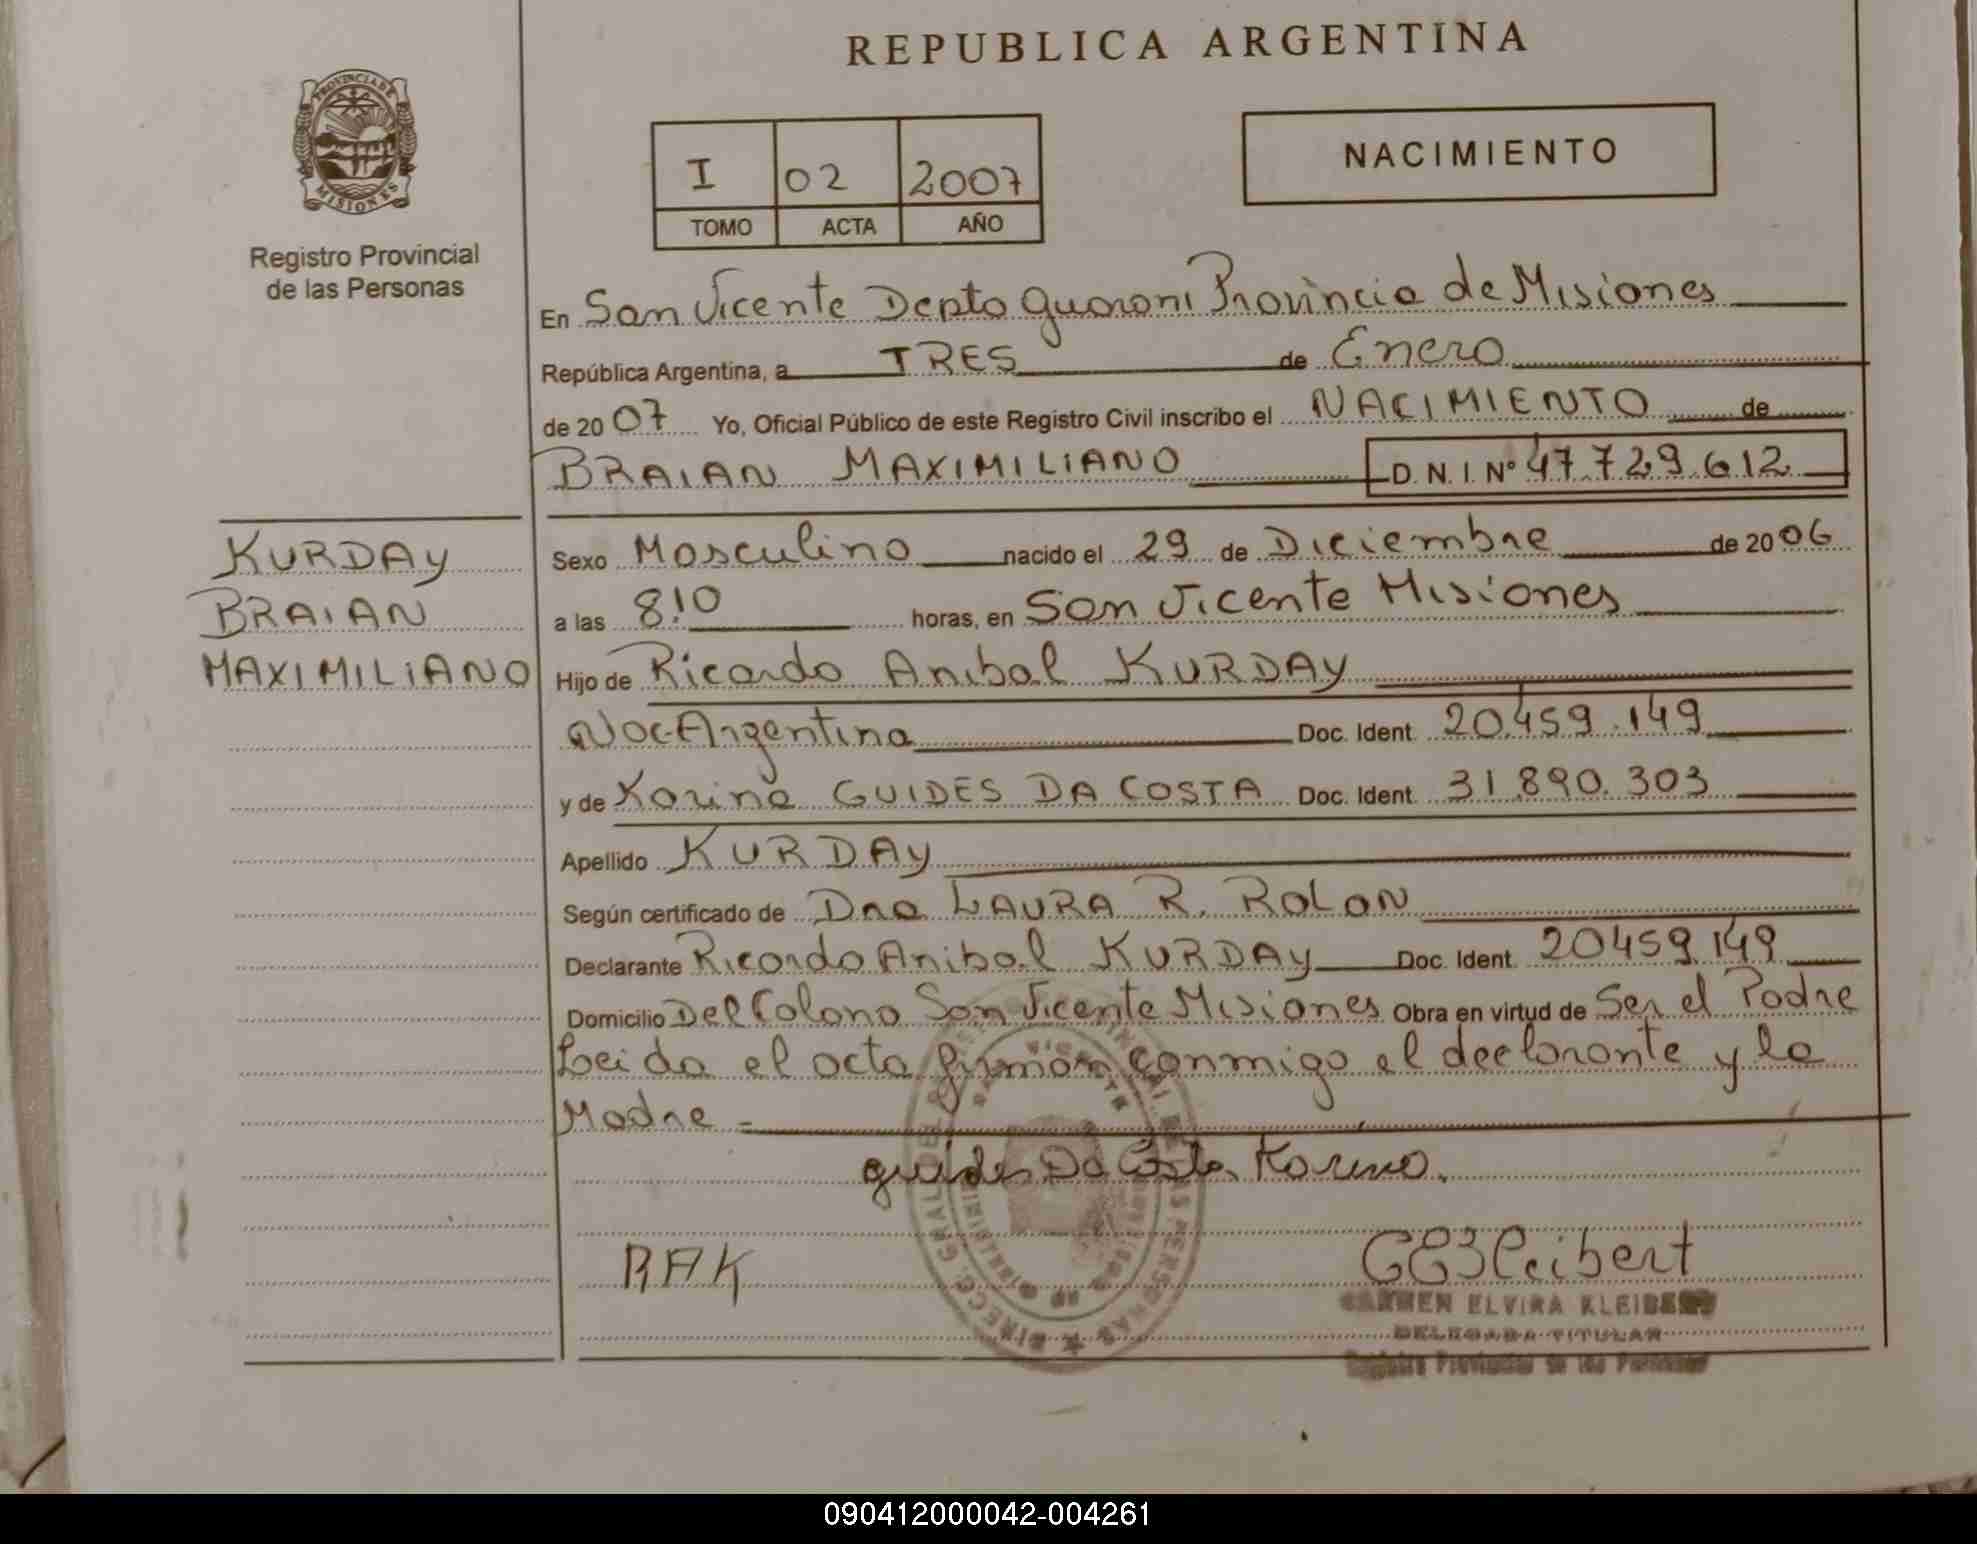 REPUBLICA ARGENTINA
PROVINCIA DE
MISIONES
Registro Provincial
de las Personas
I 02 2007
TOMO ACTA AÑO
NACIMIENTO
En San Vicente Depto Guarani Provincia de Misiones
República Argentina, a TRES de Enero
de 2007 Yo, Oficial Público de este Registro Civil inscribo el NACIMIENTO de
BRAIAN MAXIMILIANO D.N.I. Nº 47.729.612
KURDAY
BRAIAN
MAXIMILIANO
Sexo Masculino nacido el 29 de Diciembre de 2006
a las 8:10 horas, en San Vicente Misiones
Hijo de Ricardo Anibal KURDAY
Nac. Argentina Doc. Ident. 20.459.149
y de Karina GUIDES DA COSTA Doc. Ident. 31.890.303
Apellido KURDAY
Según certificado de Dra LAURA R. ROLON
Declarante Ricardo Anibal KURDAY Doc. Ident. 20459.149
Domicilio Del Colono San Vicente Misiones Obra en virtud de Ser el Padre
Leida el acta firman conmigo el declarante y la
Madre =
guides Da Costa Karina.
RAK
CEKleibert
CARMEN ELVIRA KLEIBERT
DELEGADA TITULAR
Registro Provincial de las Personas
090412000042-004261